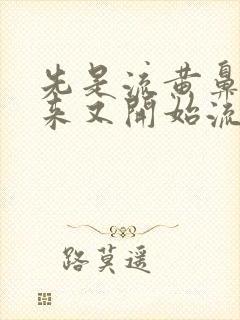 先是流黄鼻
来又開始流
路莫遥